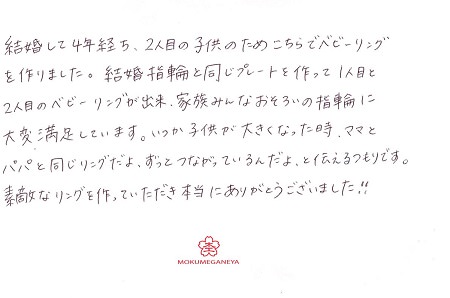 結婚して4年経ち、2人目の子供のためこちらでベビーリング
を作りました。結婚指輪と同じプレートを作って1人目と
2人目のベビーリングが出来、家族みんなおそろいの指輪に
大変満足しています。いつか子供が大きくなった時、ママと
パパと同じリングだよ、ずっとつながっているんだよ、と伝えるつもりです。
素敵なリングを作っていただき本当にありがとうございました!!
MOKUMEGANEYA